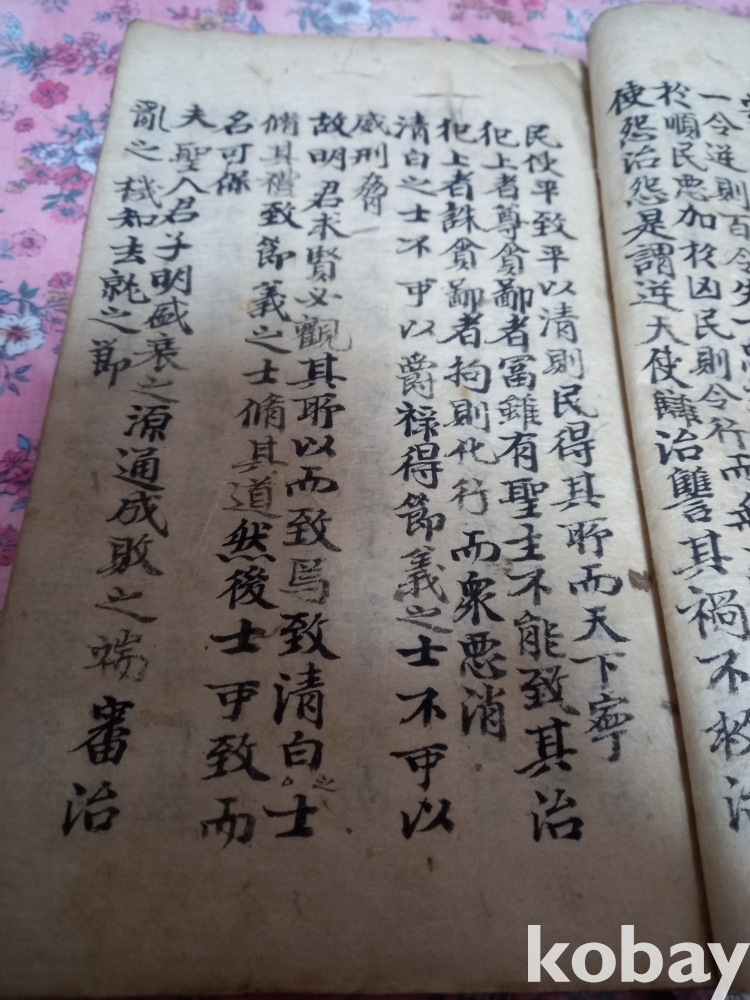 一令逆則百令失一
於順民惡加於凶民則令行而無
使怨治怨是謂逆天使讎治讎其禍不救治
民使平致平以淸則民得其所而天下寧
犯上者尊貪鄙者富雖有聖主不能致其治
犯上者誅貪鄙者拘則化行而衆惡消
清白之士不可以爵祿得節義之士不可以
威刑脅
故明君求賢必觀其所以而致焉致清白之士
脩其禮致節義之士脩其道然後士可致而
名可保
夫聖人君子明盛衰之源通成敗之端審治
亂之機知去就之節
kobay